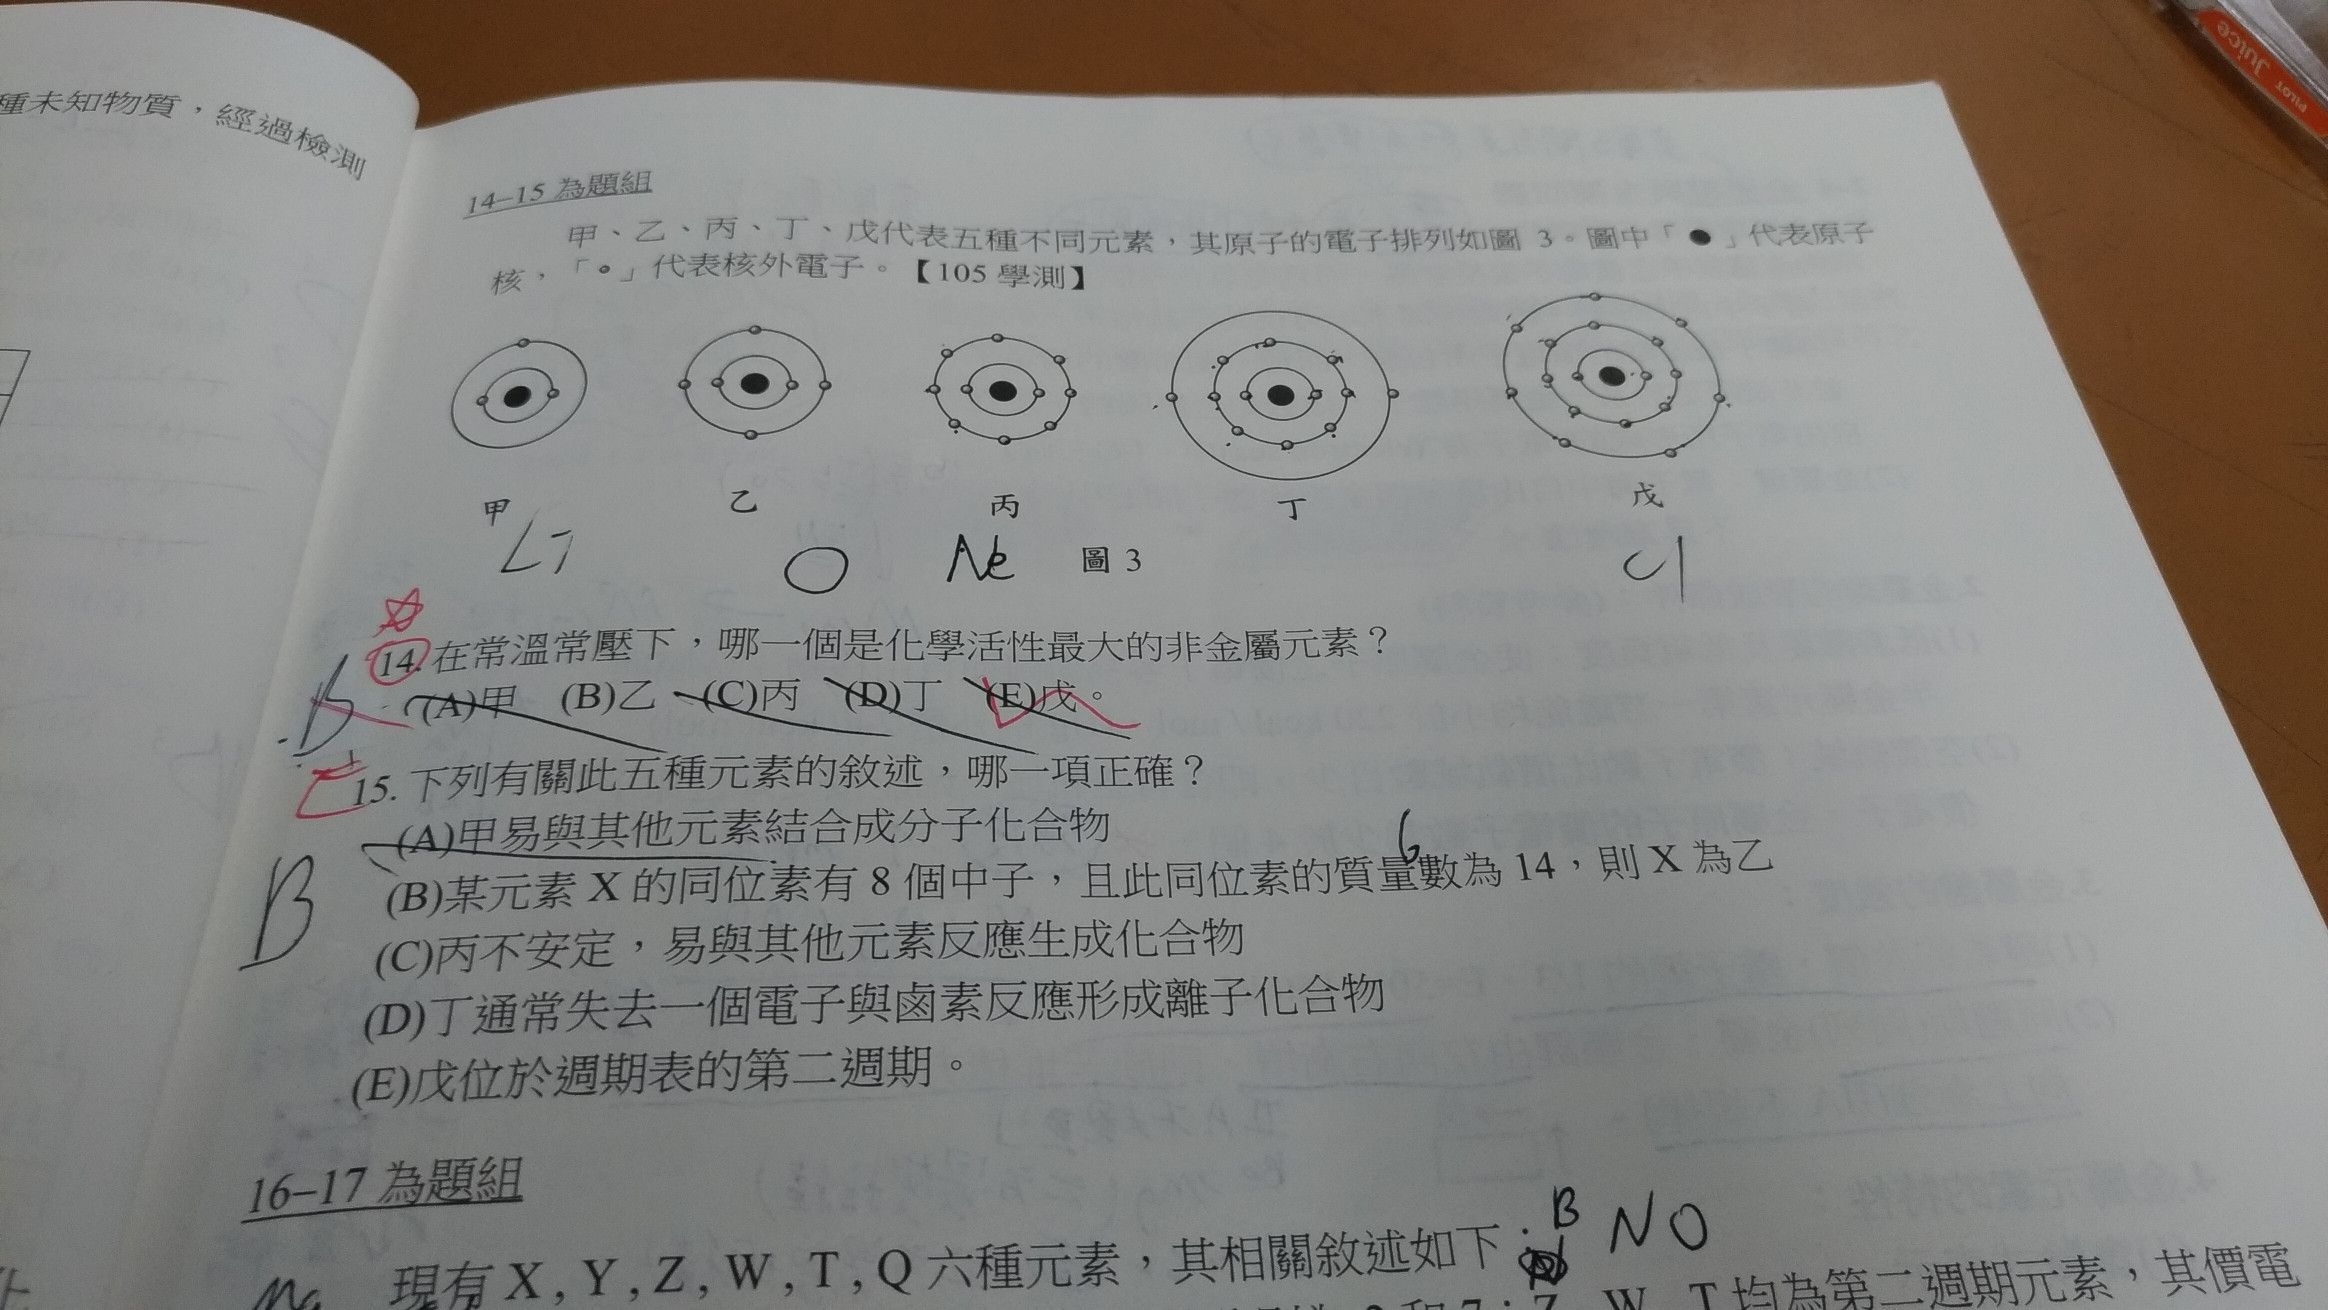 種未知物質，經過檢測
14–15 為題組
甲、乙、丙、丁、戊代表五種不同元素，其原子的電子排列如圖 3。圖中「●」代表原子
核，「∘」代表核外電子。【105 學測】
甲 乙 丙 丁 戊
Li O Ne 圖 3 Cl
14. 在常溫常壓下，哪一個是化學活性最大的非金屬元素？
B (A)甲 (B)乙 (C)丙 (D)丁 (E)戊。
E
15. 下列有關此五種元素的敘述，哪一項正確？
(A)甲易與其他元素結合成分子化合物
6
B (B)某元素 X 的同位素有 8 個中子，且此同位素的質量數為 14，則 X 為乙
(C)丙不安定，易與其他元素反應生成化合物
(D)丁通常失去一個電子與鹵素反應形成離子化合物
(E)戊位於週期表的第二週期。
16–17 為題組
B N O
現有 X , Y , Z , W , T , Q 六種元素，其相關敘述如下：
Z，W，T 均為第二週期元素，其價電
PILOT Juice